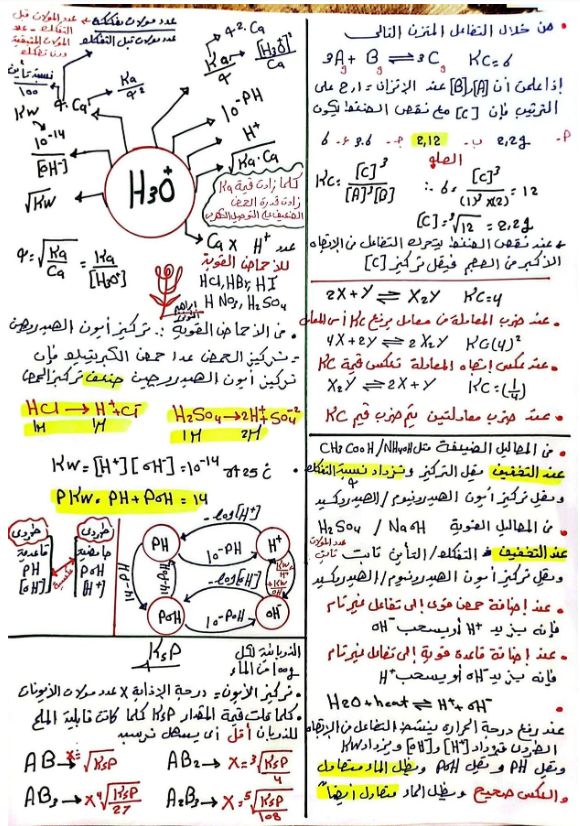 من خلال التفاعل المتزن التالي
3A g + B g ⇌ 3C g KC=6
إذا علمت أن [A] و[B] عند الإتزان = 1, 2 على
الترتيب فإن [C] مع نقص الضغط يكون
2,29 ب- 2,12 ج- 3.6 د- 6
الحلو
KC = [C]³ / [A]³[B] ∴ 6 = [C]³ / (1)³ x(2) = 12
[C] = ³√12 = 2,29
* عند نقص الضغط يتحرك التفاعل في الإتجاه
الأكبر في الحجم فيقل تركيز [C]
2X + Y ⇌ X2Y KC=4
- عند ضرب المعادلة في معامل يرفع KC أس المعامل
4X + 2Y ⇌ 2X2Y KC(4)²
- عند عكس إتجاه المعادلة تعكس قيمة KC
X2Y ⇌ 2X + Y KC=(1/4)
- عند ضرب معادلتين يتم ضرب قيم KC
في المحاليل الضعيفة مثل CH3COOH / NH4OH
عند التخفيف يقل التركيز وتزداد نسبة التفكك
ويقل تركيز أيون الهيدرونيوم / الهيدروكسيد
في المحاليل القوية H2SO4 / NaOH
عند التخفيف التفكك / التأين ثابت
عدد المولات ثابت
ويقل تركيز أيون الهيدرونيوم / الهيدروكسيد
عند إضافة حمض قوى إلى تفاعل غير تام
فإنه يزيد H⁺ أو يسحب OH⁻
عند إضافة قاعدة قوية إلى تفاعل غير تام
فإنه يزيد OH⁻ أو يسحب H⁺
H2O + heat ⇌ H⁺ + OH⁻
عند رفع درجة الحرارة ينشط التفاعل في الإتجاه
الطردى فتزداد [H⁺] و [OH⁻] ويزداد KW
ويقل PH ويقل POH ويظل الماء متعادل
والعكس صحيح ويظل الماء متعادل أيضاً
عدد مولات تفككت
عدد مولات قبل التفكك
عدد المولات قبل
التفكك - عدد
المولات المتبقية
دون تفكك
نسبة تأين
100
α.Ca
Ka/α
α².Ca
Ka/α = [H3O⁺]/Ca
10^-PH
H⁺
√Ka.Ca
Kw
10^-14/[OH⁻]
√Kw
H3O⁺
كلما زادت قيمة Ka
زادت قدرة الحمض
الضعيف على التوصيل الكهربى
Ca x عدد H⁺
للأحماض القوية
HCl, HBr, HI
HNO3, H2SO4
α = √(Ka/Ca) = Ka/[H3O⁺]
في الأحماض القوية ∴ تركيز أيون الهيدروجين
= تركيز الحمض عدا حمض الكبريتيك فإن
تركيز أيون الهيدروجين ضعف تركيز الحمض
HCl → H⁺ + Cl⁻
1M 1M
H2SO4 → 2H⁺ + SO4⁻²
1M 2M
KW = [H⁺][OH⁻] = 10^-14 at 25
PKw = PH + POH = 14
طردى
قاعدية
PH
[OH⁻]
عكسية
طردى
حامضية
POH
[H⁺]
PH
-log[H⁺]
10^-PH
H⁺
14-PH
14-POH
POH
-log[OH⁻]
10^-POH
OH⁻
KSP
الذوبانية لكل
100g من الماء
تركيز الأيون = درجة الإذابة X عدد مولات الأيونات
كلما قلت قيمة المقدار KSP كلما كانت قابلية الملح
للذوبان أقل أى يسهل ترسيبه
AB → X = √KSP
AB2 → X = ³√(KSP/4)
AB3 → X = ⁴√(KSP/27)
A2B3 → X = ⁵√(KSP/108)